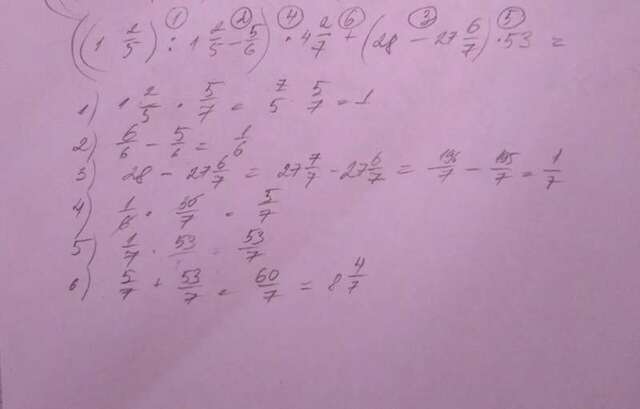 ① ② ④ ⑥ ③ ⑤
((1 2/5) : 1 2/5 - 5/6) · 4 2/7 + (28 - 27 6/7) · 53 =
1) 1 2/5 · 5/7 = 7/5 · 5/7 = 1
2) 6/6 - 5/6 = 1/6
3) 28 - 27 6/7 = 27 7/7 - 27 6/7 = 196/7 - 195/7 = 1/7
4) 1/6 · 30/7 = 5/7
5) 1/7 · 53 53/7
6) 5/7 + 53/7 = 60/7 = 8 4/7